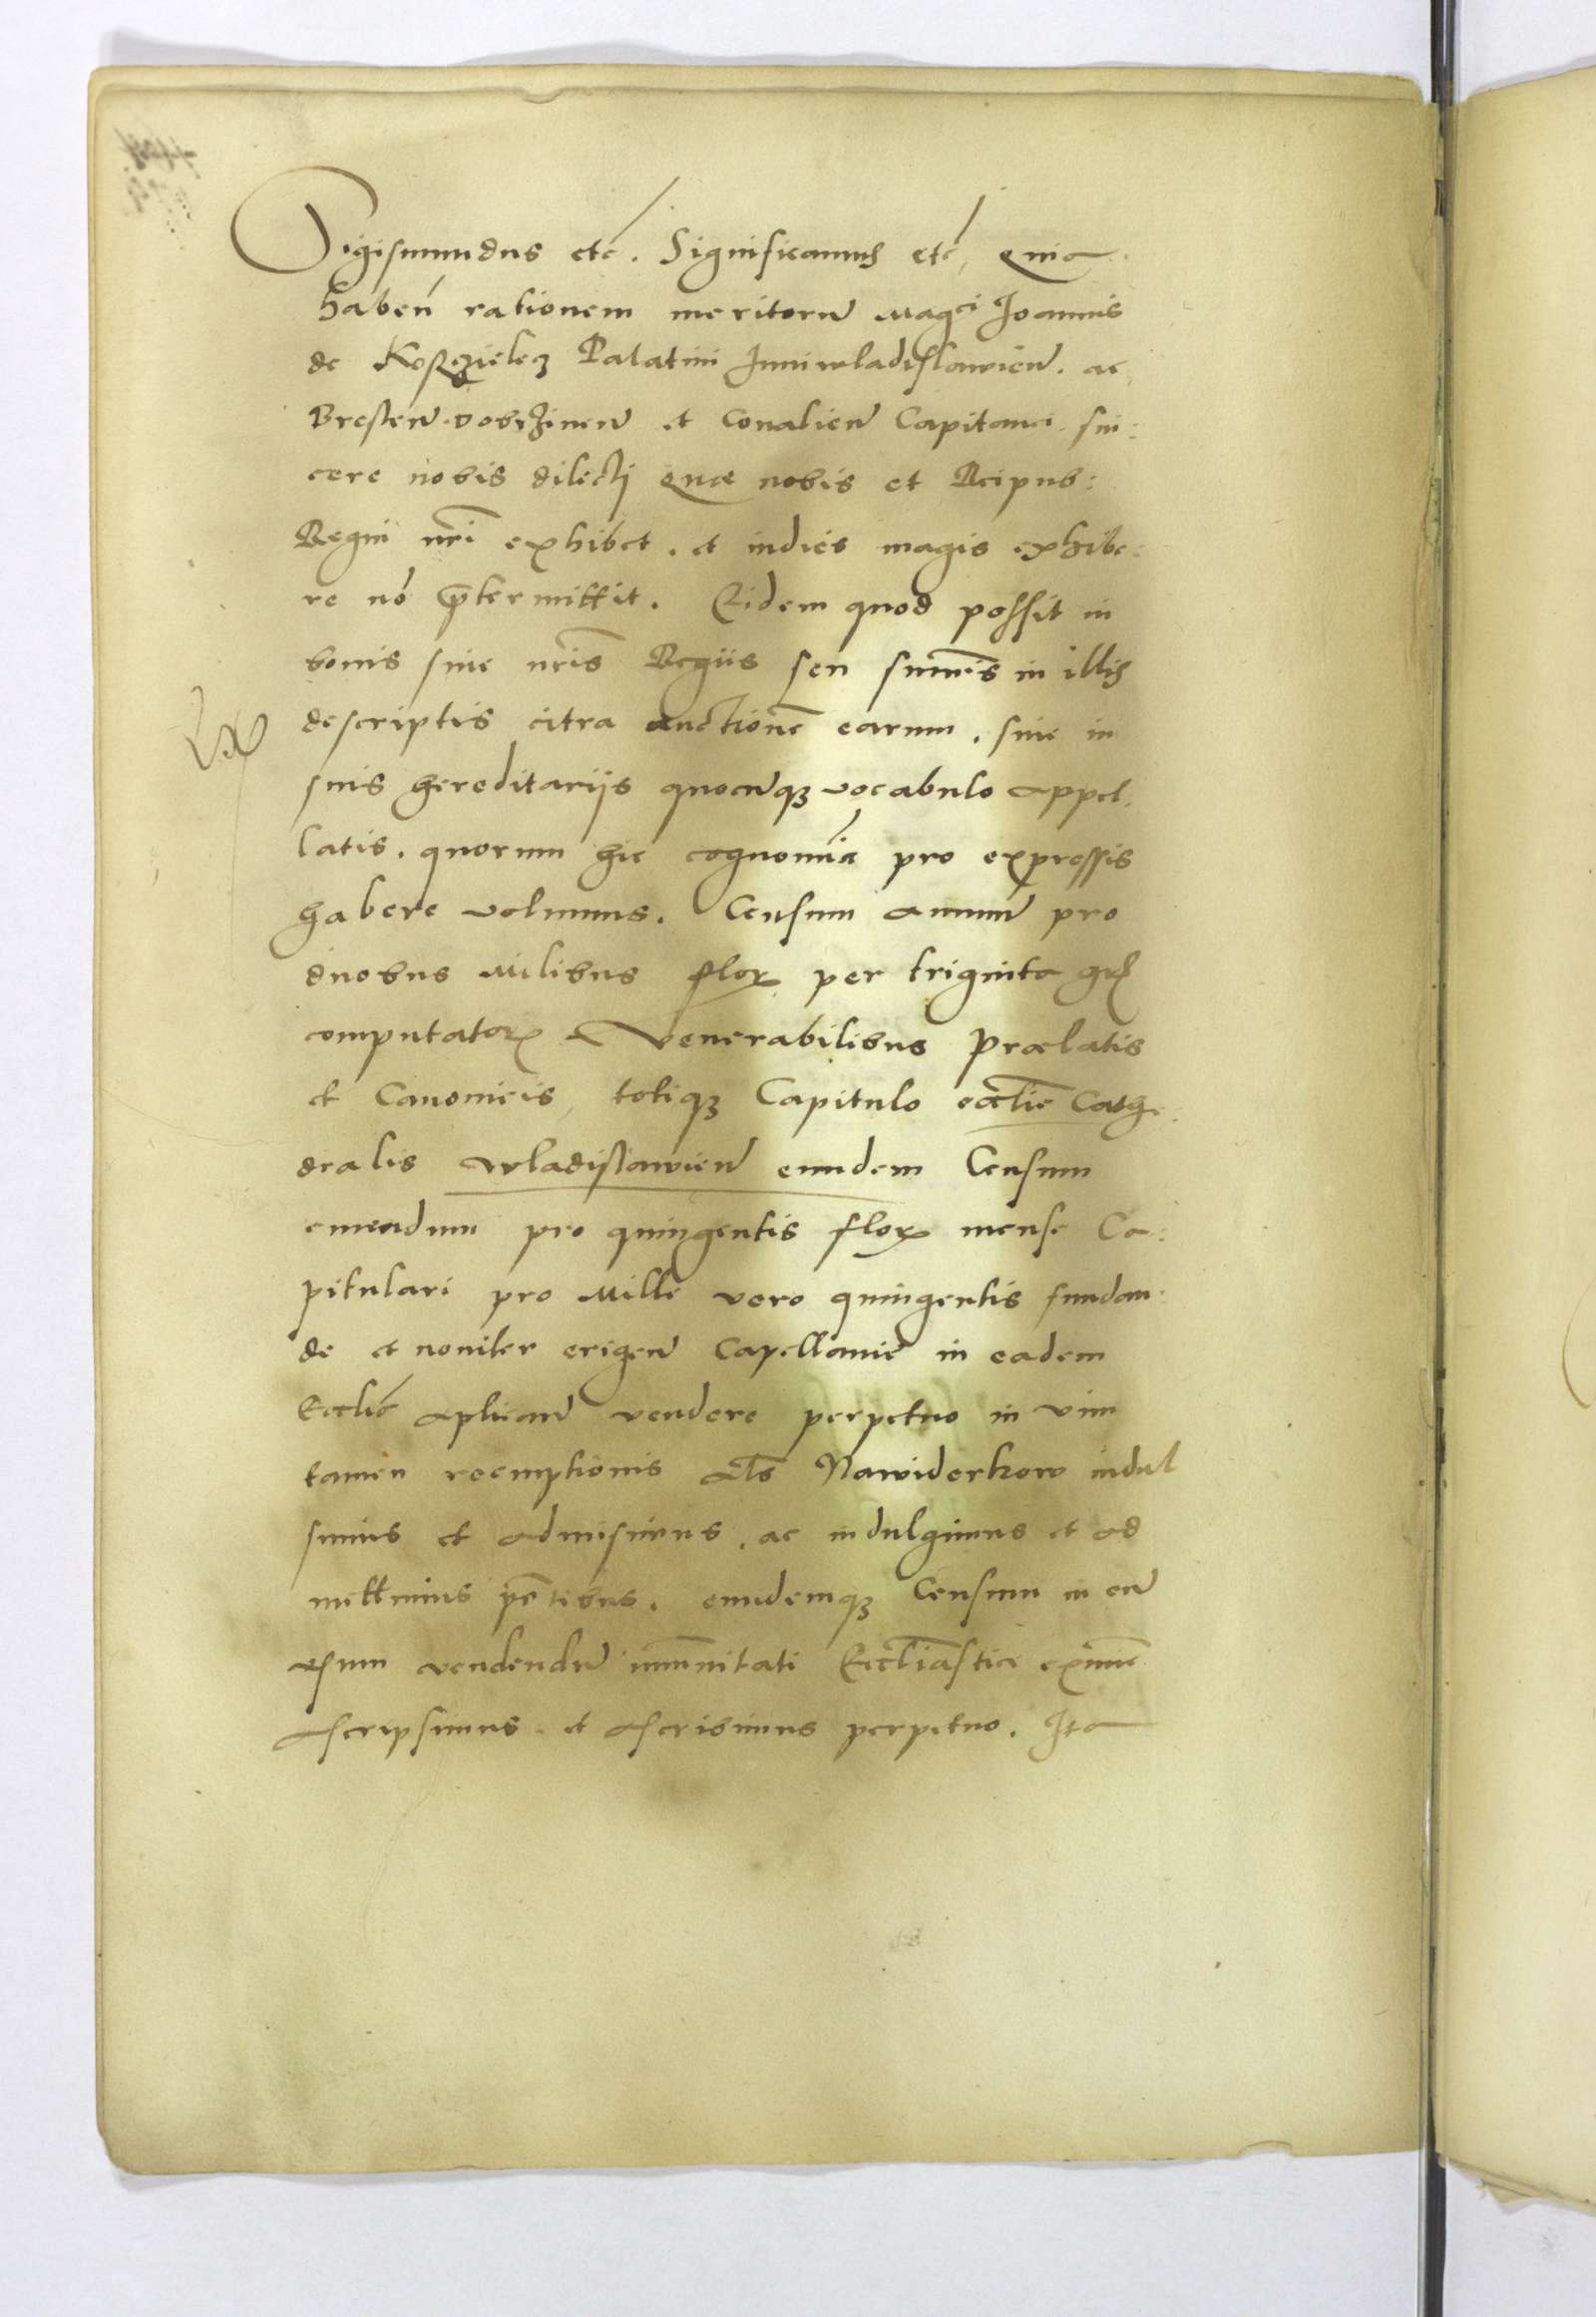 Sigismundus etc. Significamus etc, Quia
haben rationem meritoru Magci Joannis
de Koszczielecz Palatini Juniwladislawien. ac
Bresten. Dobrzinen et Conalien Capitanei sin:
cere nobis dilecti quae nobis et Reipub:
Regni nri exhibet. et indies magis exhibe:
re no ptermittit. Eidem quod possit in
bonis sive nris Regiis seu summis in illis
descriptis citra auctione earum. sive in
suis hereditariis quocunq vocabulo appel,
latis. quorum hic cognomia pro expressis
habere volumus. Censum annuu pro
duobus Milibus flor per triginta gros
computator Venerabilibus Praelatis
et Canonicis, totiq Capitulo eclie Cathe:
dralis Wladislawien eundem Censum
emendum pro quingentis flor mense Ca:
pitulari pro Mille vero quingentis fundan:
de et noviter erigen Capellanie in eadem
Ecclic aplican vendere perpetuo in vim
tamen reemptionis als Nawiderkow indul
simus et admisimus. ac indulgimus et ad
mittimus pntibus. eundemq Censum in eu
usum vendendu immunitati Eccliastice
ascripsimus. et ascribimus perpetuo. Ita